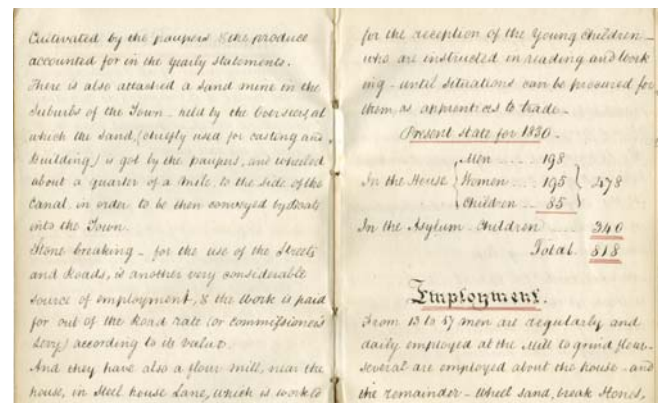 Cultivated by the paupers & the produce
accounted for in the yearly statements.
There is also attached a sand mine in the
Suburbs of the Town - held by the Overseers, at
which the sand, (chiefly used for casting and
building) is got by the paupers, and wheeled
about a quarter of a mile, to the side of the
Canal, in order to be then conveyed by boats
into the Town.
Stone breaking - for the use of the Streets
and Roads, is another very considerable
source of employment, & the work is paid
for out of the Road rate (or Commissioners
Levy) according to its value.
And they have also a flour mill, near the
house, in Steel house Lane, which is worked
for the reception of the Young Children -
who are instructed in reading and work
ing - until situations can be procured for
them as apprentices to trade -
Present state for 1830 -
Men .... 198
In the House { Women .... 195 } 478
Children .. 85
In the Asylum - Children 340
Total. 818
Employment.
From 13 to 57 men are regularly and
daily employed at the Mill to grind flour -
several are employed about the house - and
the remainder - wheel sand, break stones,